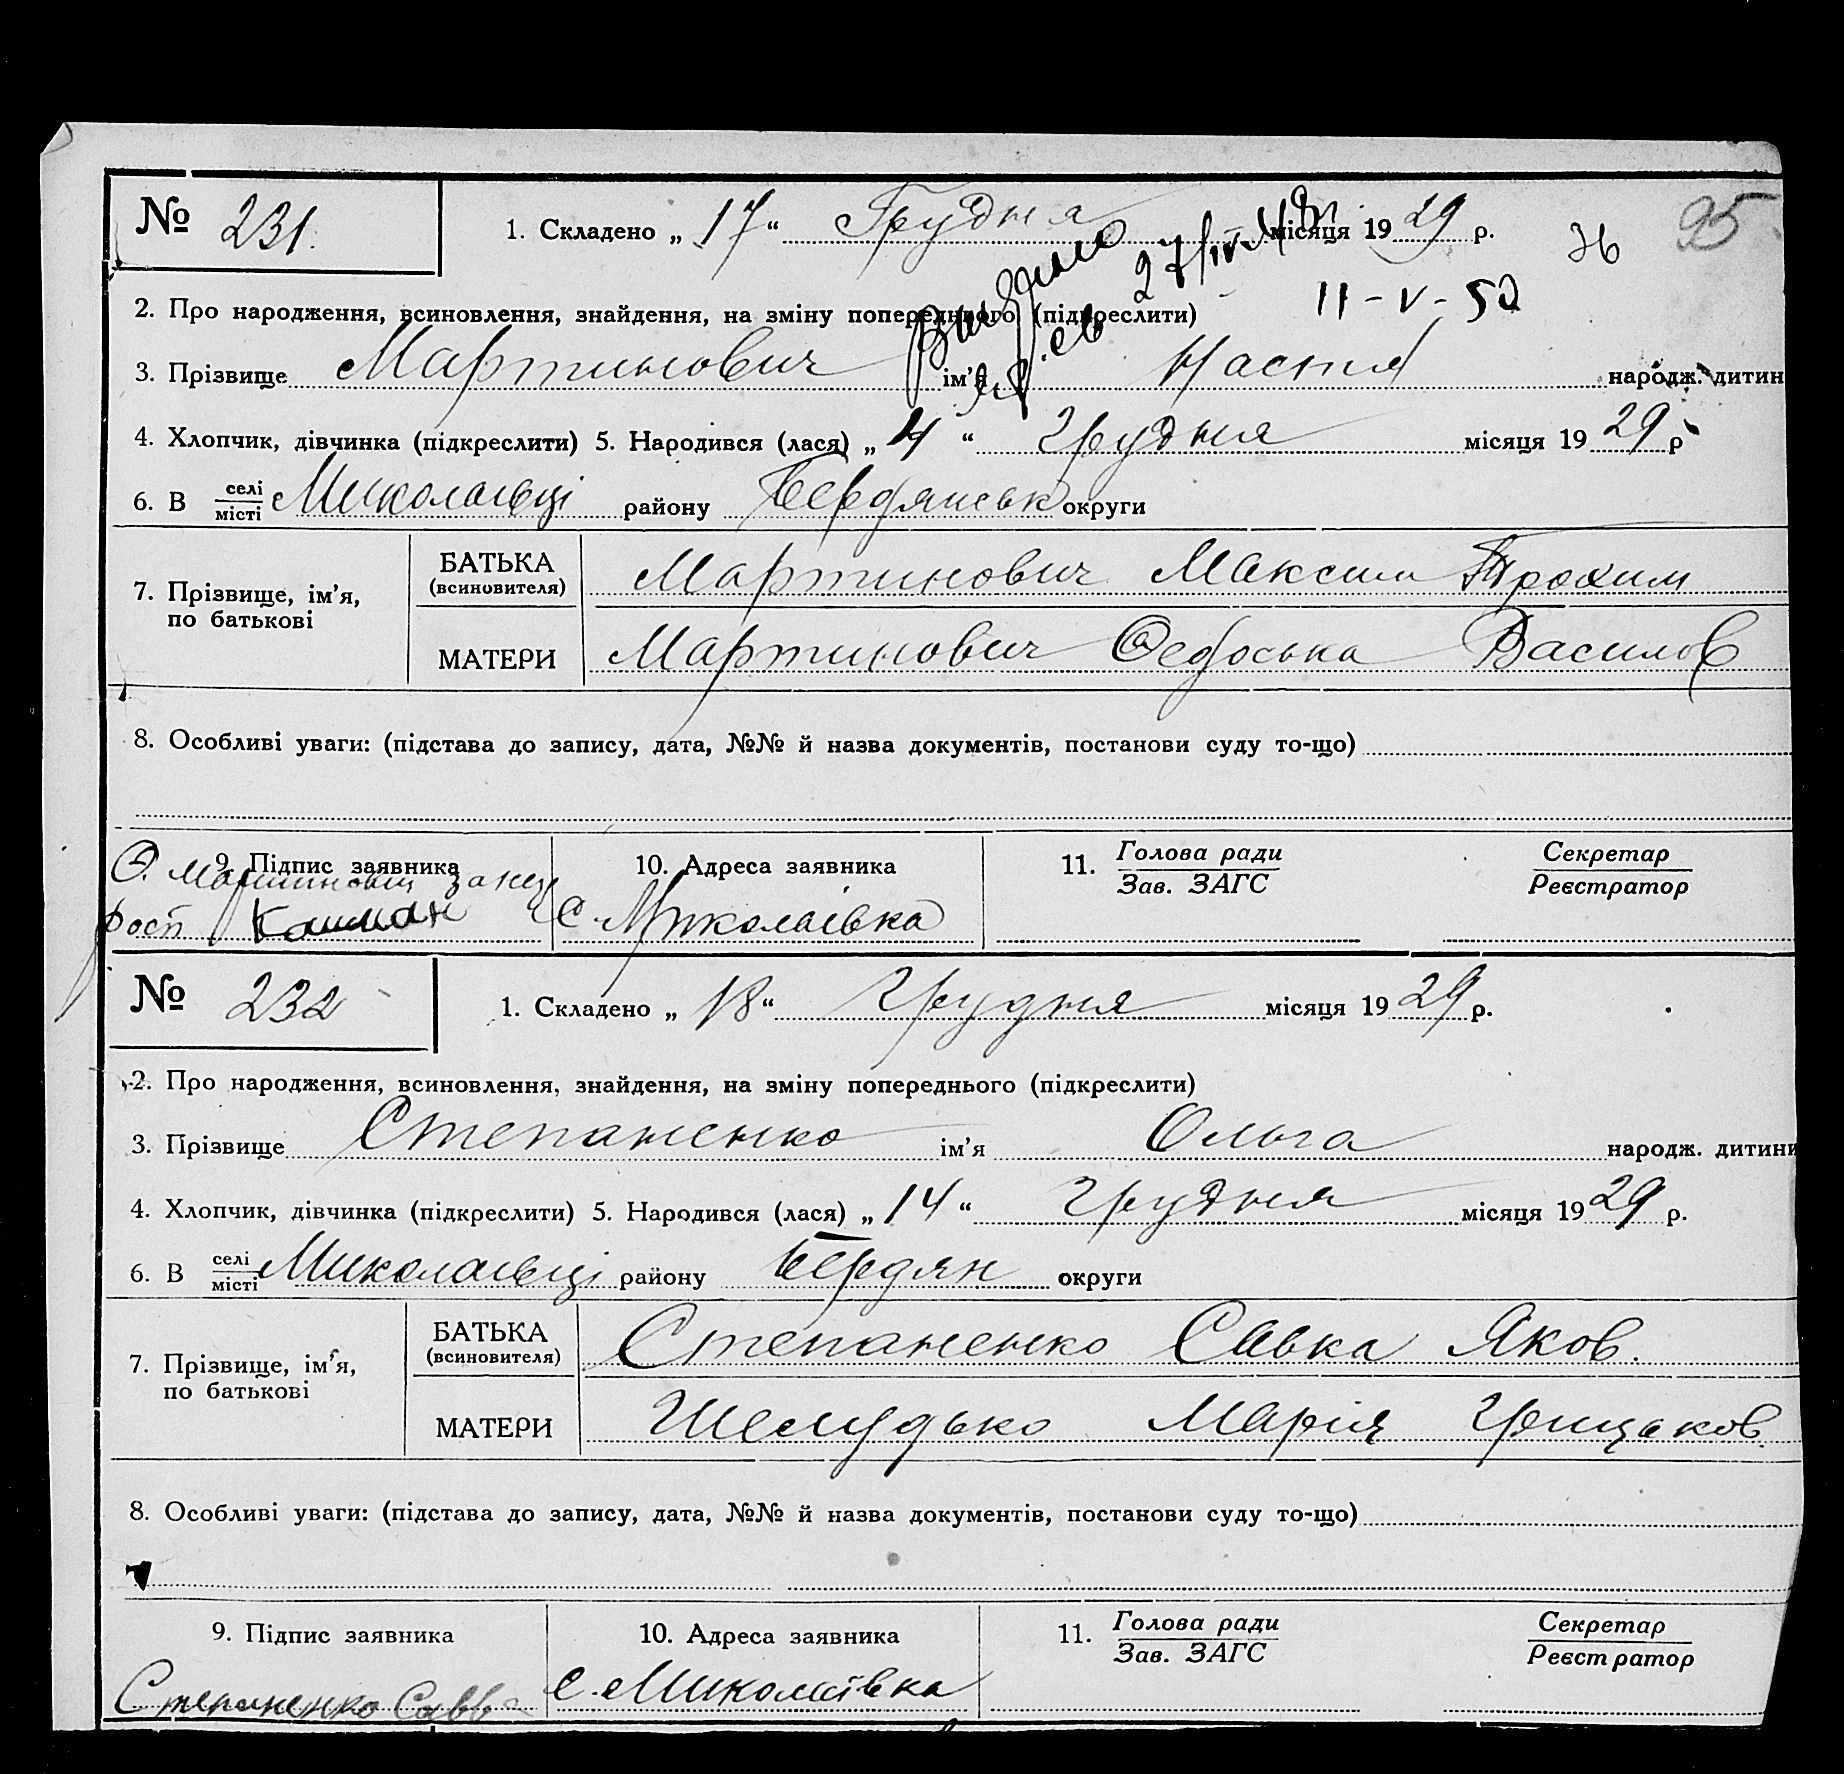 № 231. 1. Складено „ 17 “ Грудня місяця 1929 р. 36 95
Видано 27/IV
2. Про народження, всиновлення, знайдення, на зміну попереднього (підкреслити) 11-V-50
3. Прізвище Мартинович ім’я Настя народж. дитин
4. Хлопчик, дівчинка (підкреслити) 5. Народився (лася) „ 4 “ Грудня місяця 1929 р.
6. В селі/місті Миколаївці району Бердянськ округи
7. Прізвище, ім’я, по батькові
БАТЬКА (всиновителя) Мартинович Максим Трохим
МАТЕРИ Мартинович Федоська Василов
8. Особливі уваги: (підстава до запису, дата, №№ й назва документів, постанови суду то-що)
9. Підпис заявника 10. Адреса заявника 11. Голова ради/Зав. ЗАГС Секретар/Реєстратор
Ф. Мартинович за
рост Кашман С. Миколаївка
№ 232 1. Складено „ 18 “ Грудня місяця 1929 р.
2. Про народження, всиновлення, знайдення, на зміну попереднього (підкреслити)
3. Прізвище Степаненко ім’я Ольга народж. дитини
4. Хлопчик, дівчинка (підкреслити) 5. Народився (лася) „ 14 “ Грудня місяця 1929 р.
6. В селі/місті Миколаївці району Бердян округи
7. Прізвище, ім’я, по батькові
БАТЬКА (всиновителя) Степаненко Савка Яков.
МАТЕРИ Шелудько Марія Грицьков.
8. Особливі уваги: (підстава до запису, дата, №№ й назва документів, постанови суду то-що)
9. Підпис заявника 10. Адреса заявника 11. Голова ради/Зав. ЗАГС Секретар/Реєстратор
Степаненко Савв С. Миколаївка